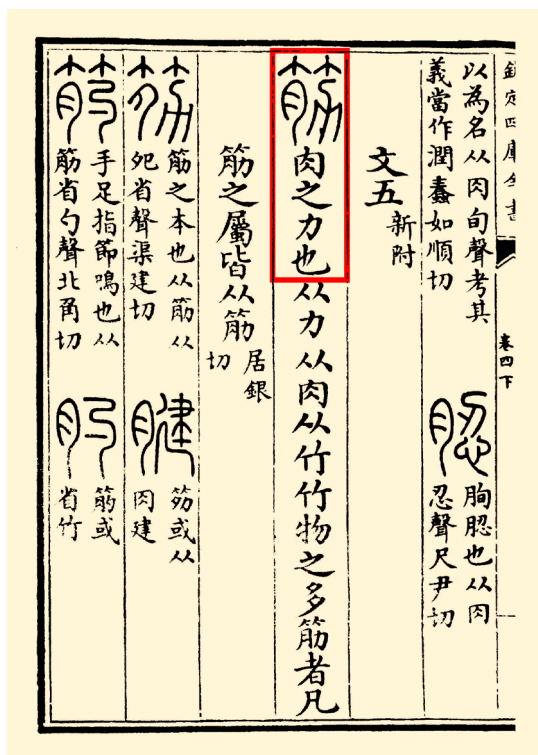 欽定四庫全書
卷四下
以為名从肉旬聲考其
義當作潤蠢如順切
䏰
朐䏰也从肉
忍聲尺尹切
文五
新附
筋
肉之力也从力从肉从竹竹物之多筋者凡
筋之屬皆从筋
居銀
切
筋之本也从筋从
夗省聲渠建切
腱
笏或从
肉建
手足指節鳴也从
筋省勺聲北角切
筋或
省竹